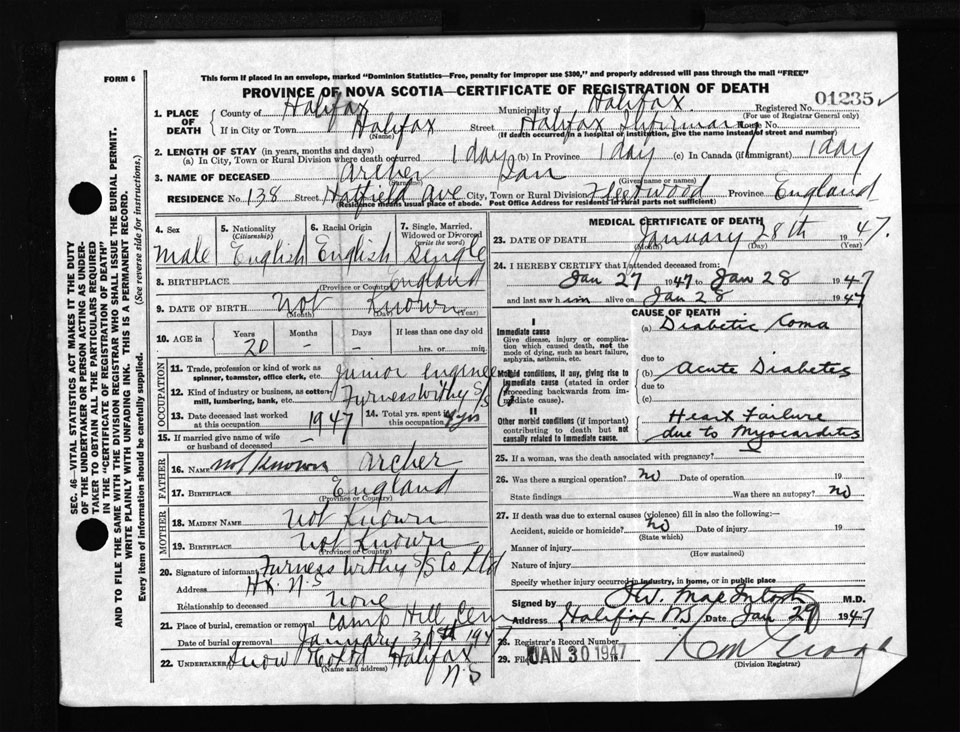 FORM 6
This form if placed in an envelope, marked "Dominion Statistics—Free, penalty for improper use $300," and properly addressed will pass through the mail "FREE"
PROVINCE OF NOVA SCOTIA—CERTIFICATE OF REGISTRATION OF DEATH
01235
1. PLACE OF DEATH
County of Halifax Municipality of Halifax. Registered No.
(For use of Registrar General only)
If in City or Town Halifax Street Halifax Infirmary House No.
(Name) (If death occurred in a hospital or institution, give the name instead of street and number)
2. LENGTH OF STAY (in years, months and days)
(a) In City, Town or Rural Division where death occurred 1 day (b) In Province 1 day (c) In Canada (if immigrant) 1 day
3. NAME OF DECEASED Archer Ian
(Surname) (Given name or names)
RESIDENCE No. 138 Street Hatfield Ave City, Town or Rural Division Fleetwood Province England
(Residence means usual place of abode. Post Office Address for residents of rural parts not sufficient)
4. Sex
Male
5. Nationality
(Citizenship)
English
6. Racial Origin
English
7. Single, Married, Widowed or Divorced
(write the word)
Single
8. BIRTHPLACE England
(Province or Country)
9. DATE OF BIRTH Not Known
(Month) (Day) (Year)
10. AGE in
Years Months Days If less than one day old
20 – – hrs. or min.
OCCUPATION
11. Trade, profession or kind of work as spinner, teamster, office clerk, etc. Junior engineer
12. Kind of industry or business, as cotton mill, lumbering, bank, etc. Furness Withy S/S Co
13. Date deceased last worked at this occupation 1947
14. Total yrs. spent in this occupation 4 yrs
15. If married give name of wife or husband of deceased –
FATHER
16. NAME not known Archer
17. BIRTHPLACE England
(Province or Country)
MOTHER
18. MAIDEN NAME Not Known
19. BIRTHPLACE Not Known
(Province or Country)
20. Signature of informant Furness Withy S/S Co Ltd
Address Hx. N.S
Relationship to deceased none
21. Place of burial, cremation or removal Camp Hill Cem
Date of burial or removal January 30th 1947
22. UNDERTAKER Snow & Co Ltd Halifax
(Name and address) N.S
MEDICAL CERTIFICATE OF DEATH
23. DATE OF DEATH January 28th 1947.
(Month) (Day) (Year)
24. I HEREBY CERTIFY that I attended deceased from:
Jan 27 1947 to Jan 28 1947
and last saw him alive on Jan 28 1947
CAUSE OF DEATH
I
Immediate cause
Give disease, injury or complication which caused death, not the mode of dying, such as heart failure, asphyxia, asthenia, etc.
(a) Diabetic Coma
due to
Morbid conditions, if any, giving rise to immediate cause (stated in order proceeding backwards from immediate cause).
(b) Acute Diabetes
due to
(c)
II
Other morbid conditions (if important) contributing to death but not causally related to immediate cause.
Heart Failure
due to Myocarditis
25. If a woman, was the death associated with pregnancy?
26. Was there a surgical operation? no Date of operation 19
State findings Was there an autopsy? no
27. If death was due to external causes (violence) fill in also the following:—
Accident, suicide or homicide? no Date of injury 19
(State which)
Manner of injury
(How sustained)
Nature of injury
Specify whether injury occurred in industry, in home, or in public place
Signed by MacIntosh M.D.
Address Halifax NS Date Jan 29 1947
28. Registrar's Record Number
29. Filed JAN 30 1947 19
(Division Registrar)
SEC. 46—VITAL STATISTICS ACT MAKES IT THE DUTY
OF THE UNDERTAKER OR PERSON ACTING AS UNDER-
TAKER TO OBTAIN ALL THE PARTICULARS REQUIRED
IN THE "CERTIFICATE OF REGISTRATION OF DEATH"
AND TO FILE THE SAME WITH THE DIVISION REGISTRAR WHO SHALL ISSUE THE BURIAL PERMIT.
WRITE PLAINLY WITH UNFADING INK. THIS IS A PERMANENT RECORD.
Every item of information should be carefully supplied. (See reverse side for instructions.)